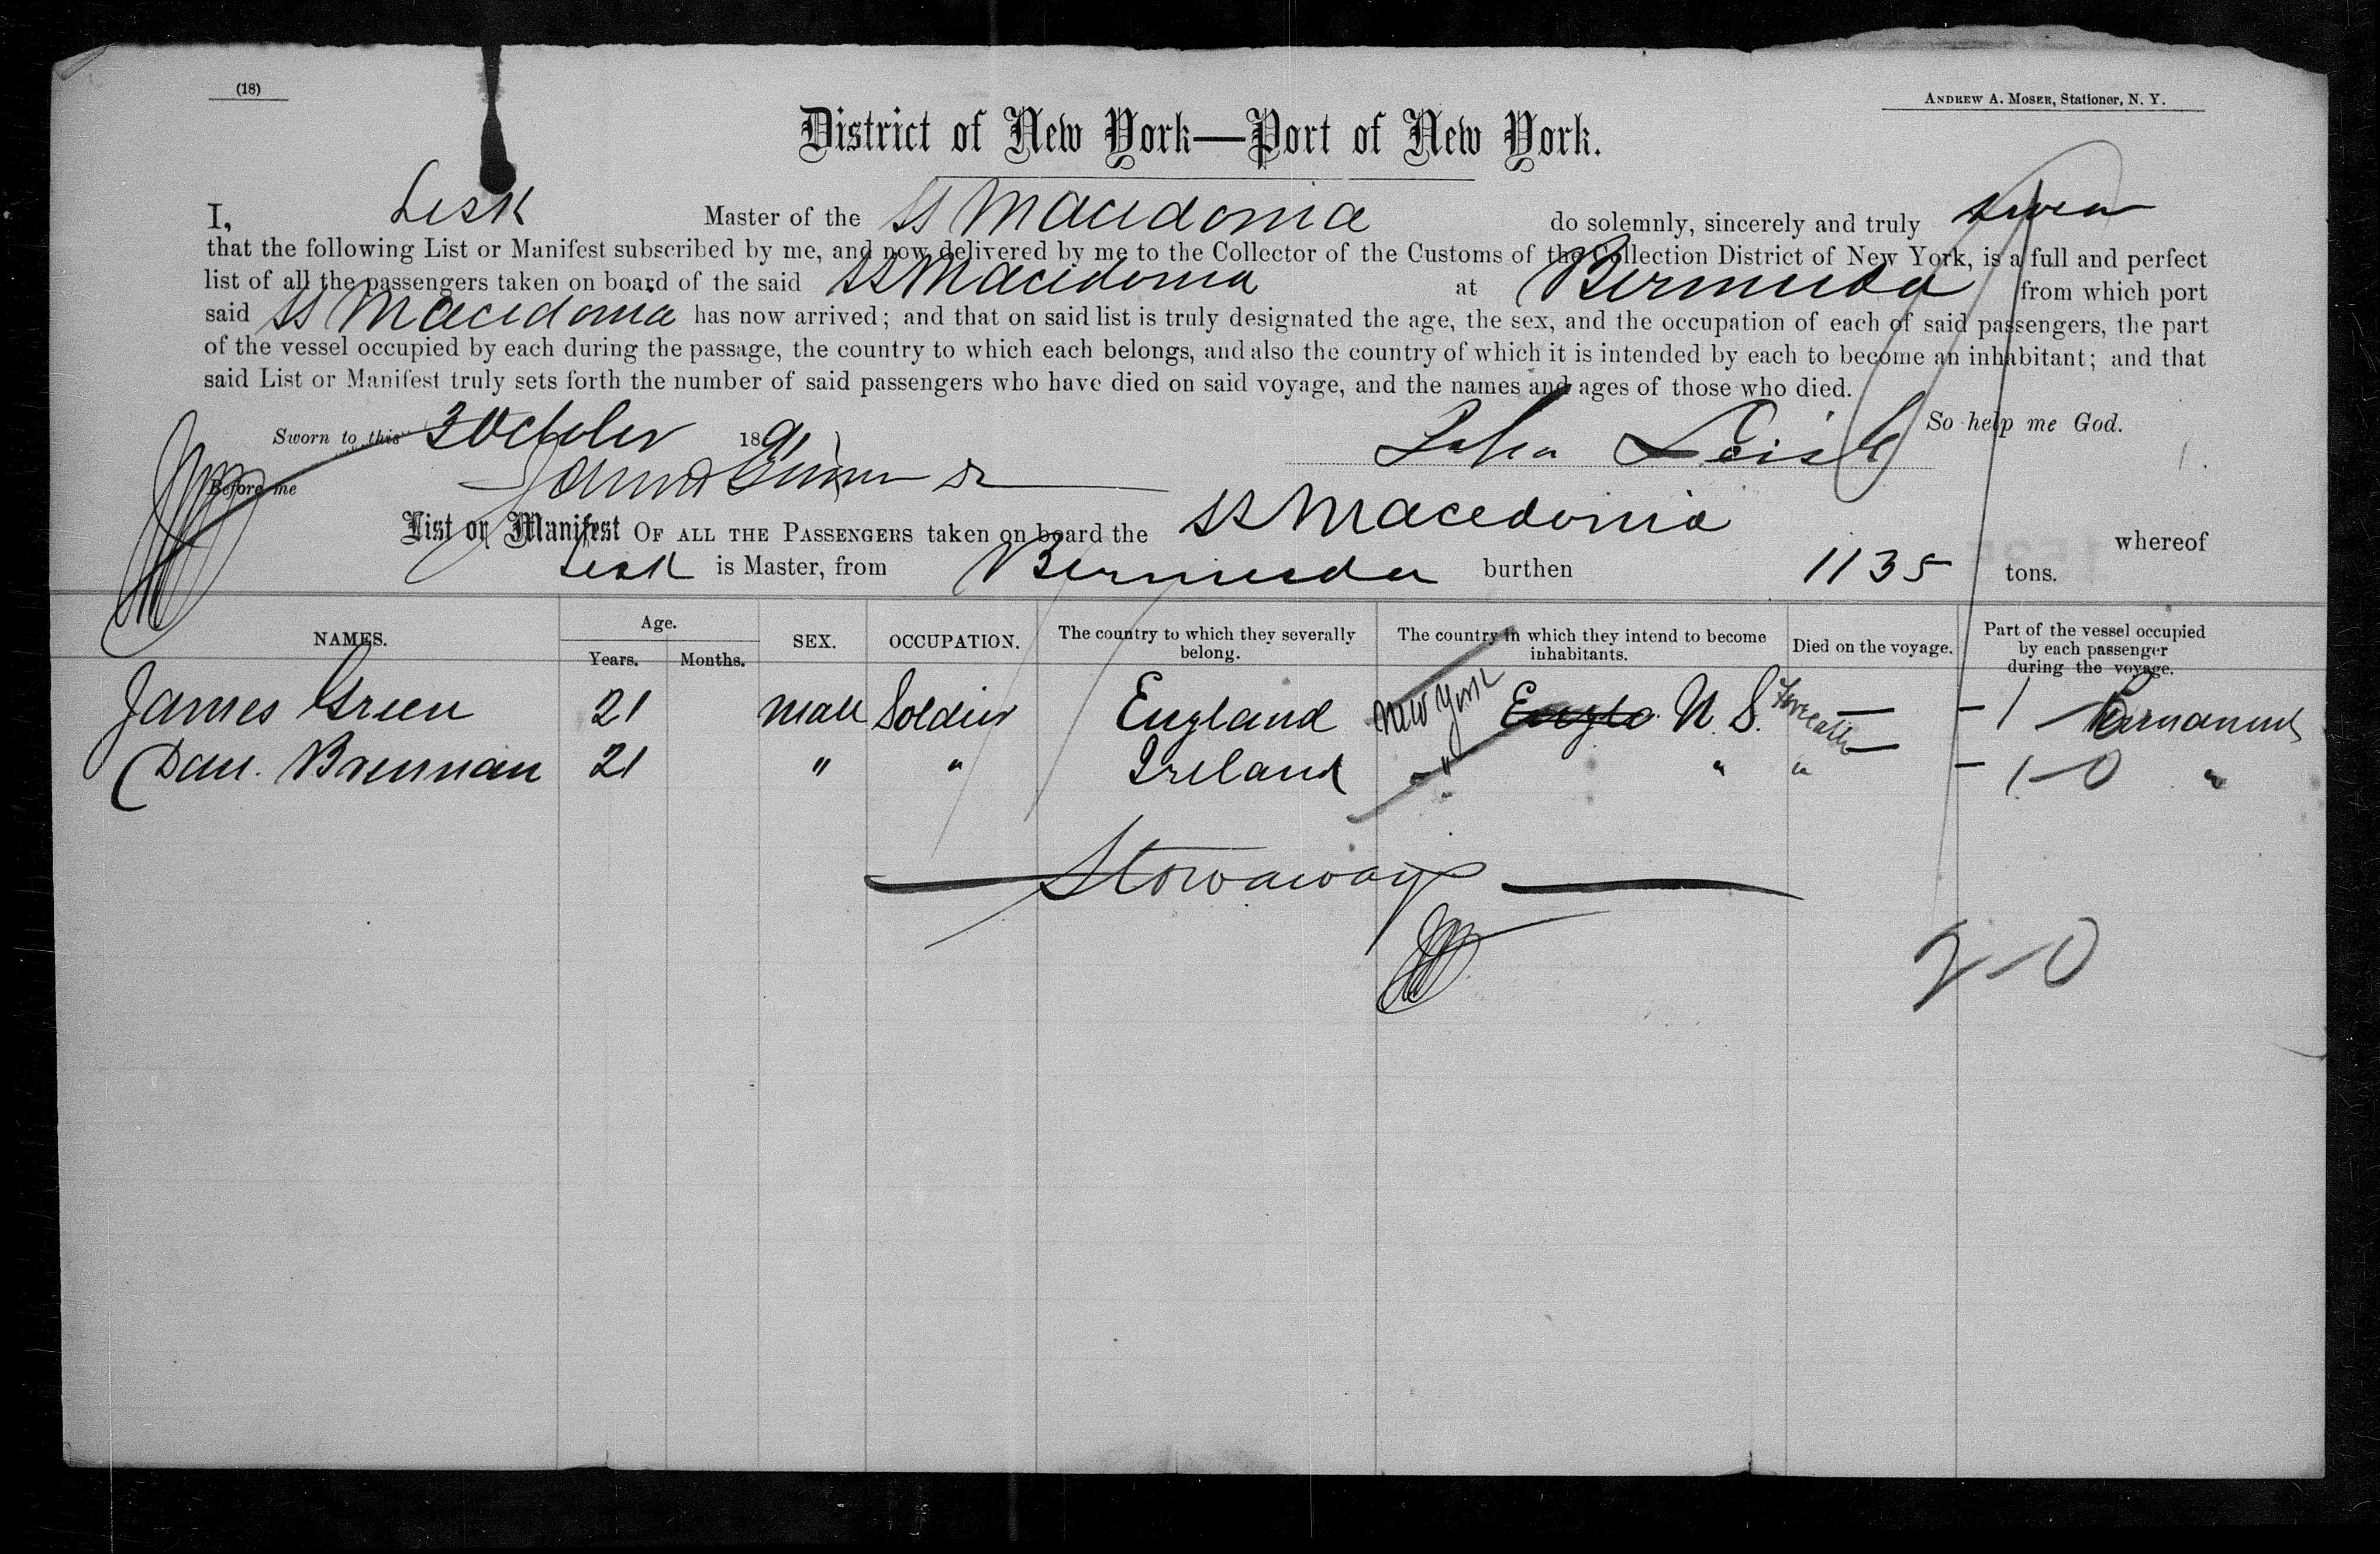 (18)
ANDREW A. MOSER, Stationer, N. Y.
District of New York—Port of New York.
I, Lesk Master of the SS Macedonia do solemnly, sincerely and truly swear
that the following List or Manifest subscribed by me, and now delivered by me to the Collector of the Customs of the Collection District of New York, is a full and perfect
list of all the passengers taken on board of the said SS Macedonia at Bermuda from which port
said SS Macedonia has now arrived; and that on said list is truly designated the age, the sex, and the occupation of each of said passengers, the part
of the vessel occupied by each during the passage, the country to which each belongs, and also the country of which it is intended by each to become an inhabitant; and that
said List or Manifest truly sets forth the number of said passengers who have died on said voyage, and the names and ages of those who died.
So help me God.
Sworn to this 3 October 1891
John Leisk
Before me
List or Manifest OF ALL THE PASSENGERS taken on board the SS Macedonia whereof
Lesk is Master, from Bermuda burthen 1135 tons.
NAMES. Age. Years. Months. SEX. OCCUPATION. The country to which they severally belong. The country in which they intend to become inhabitants. Died on the voyage. Part of the vessel occupied by each passenger during the voyage.
James Green 21 Male Soldier England New York U. S. — - 1 Permanent
Dan. Brennan 21 " " Ireland " " " — - 1-0 "
Stowaways
2-0